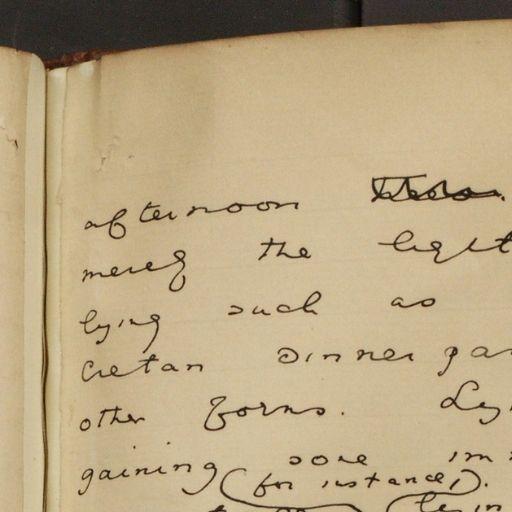 afternoon
merely the light
lying such as
Cretan dinner par
other forms. Ly
gaining some im
(for instance,).